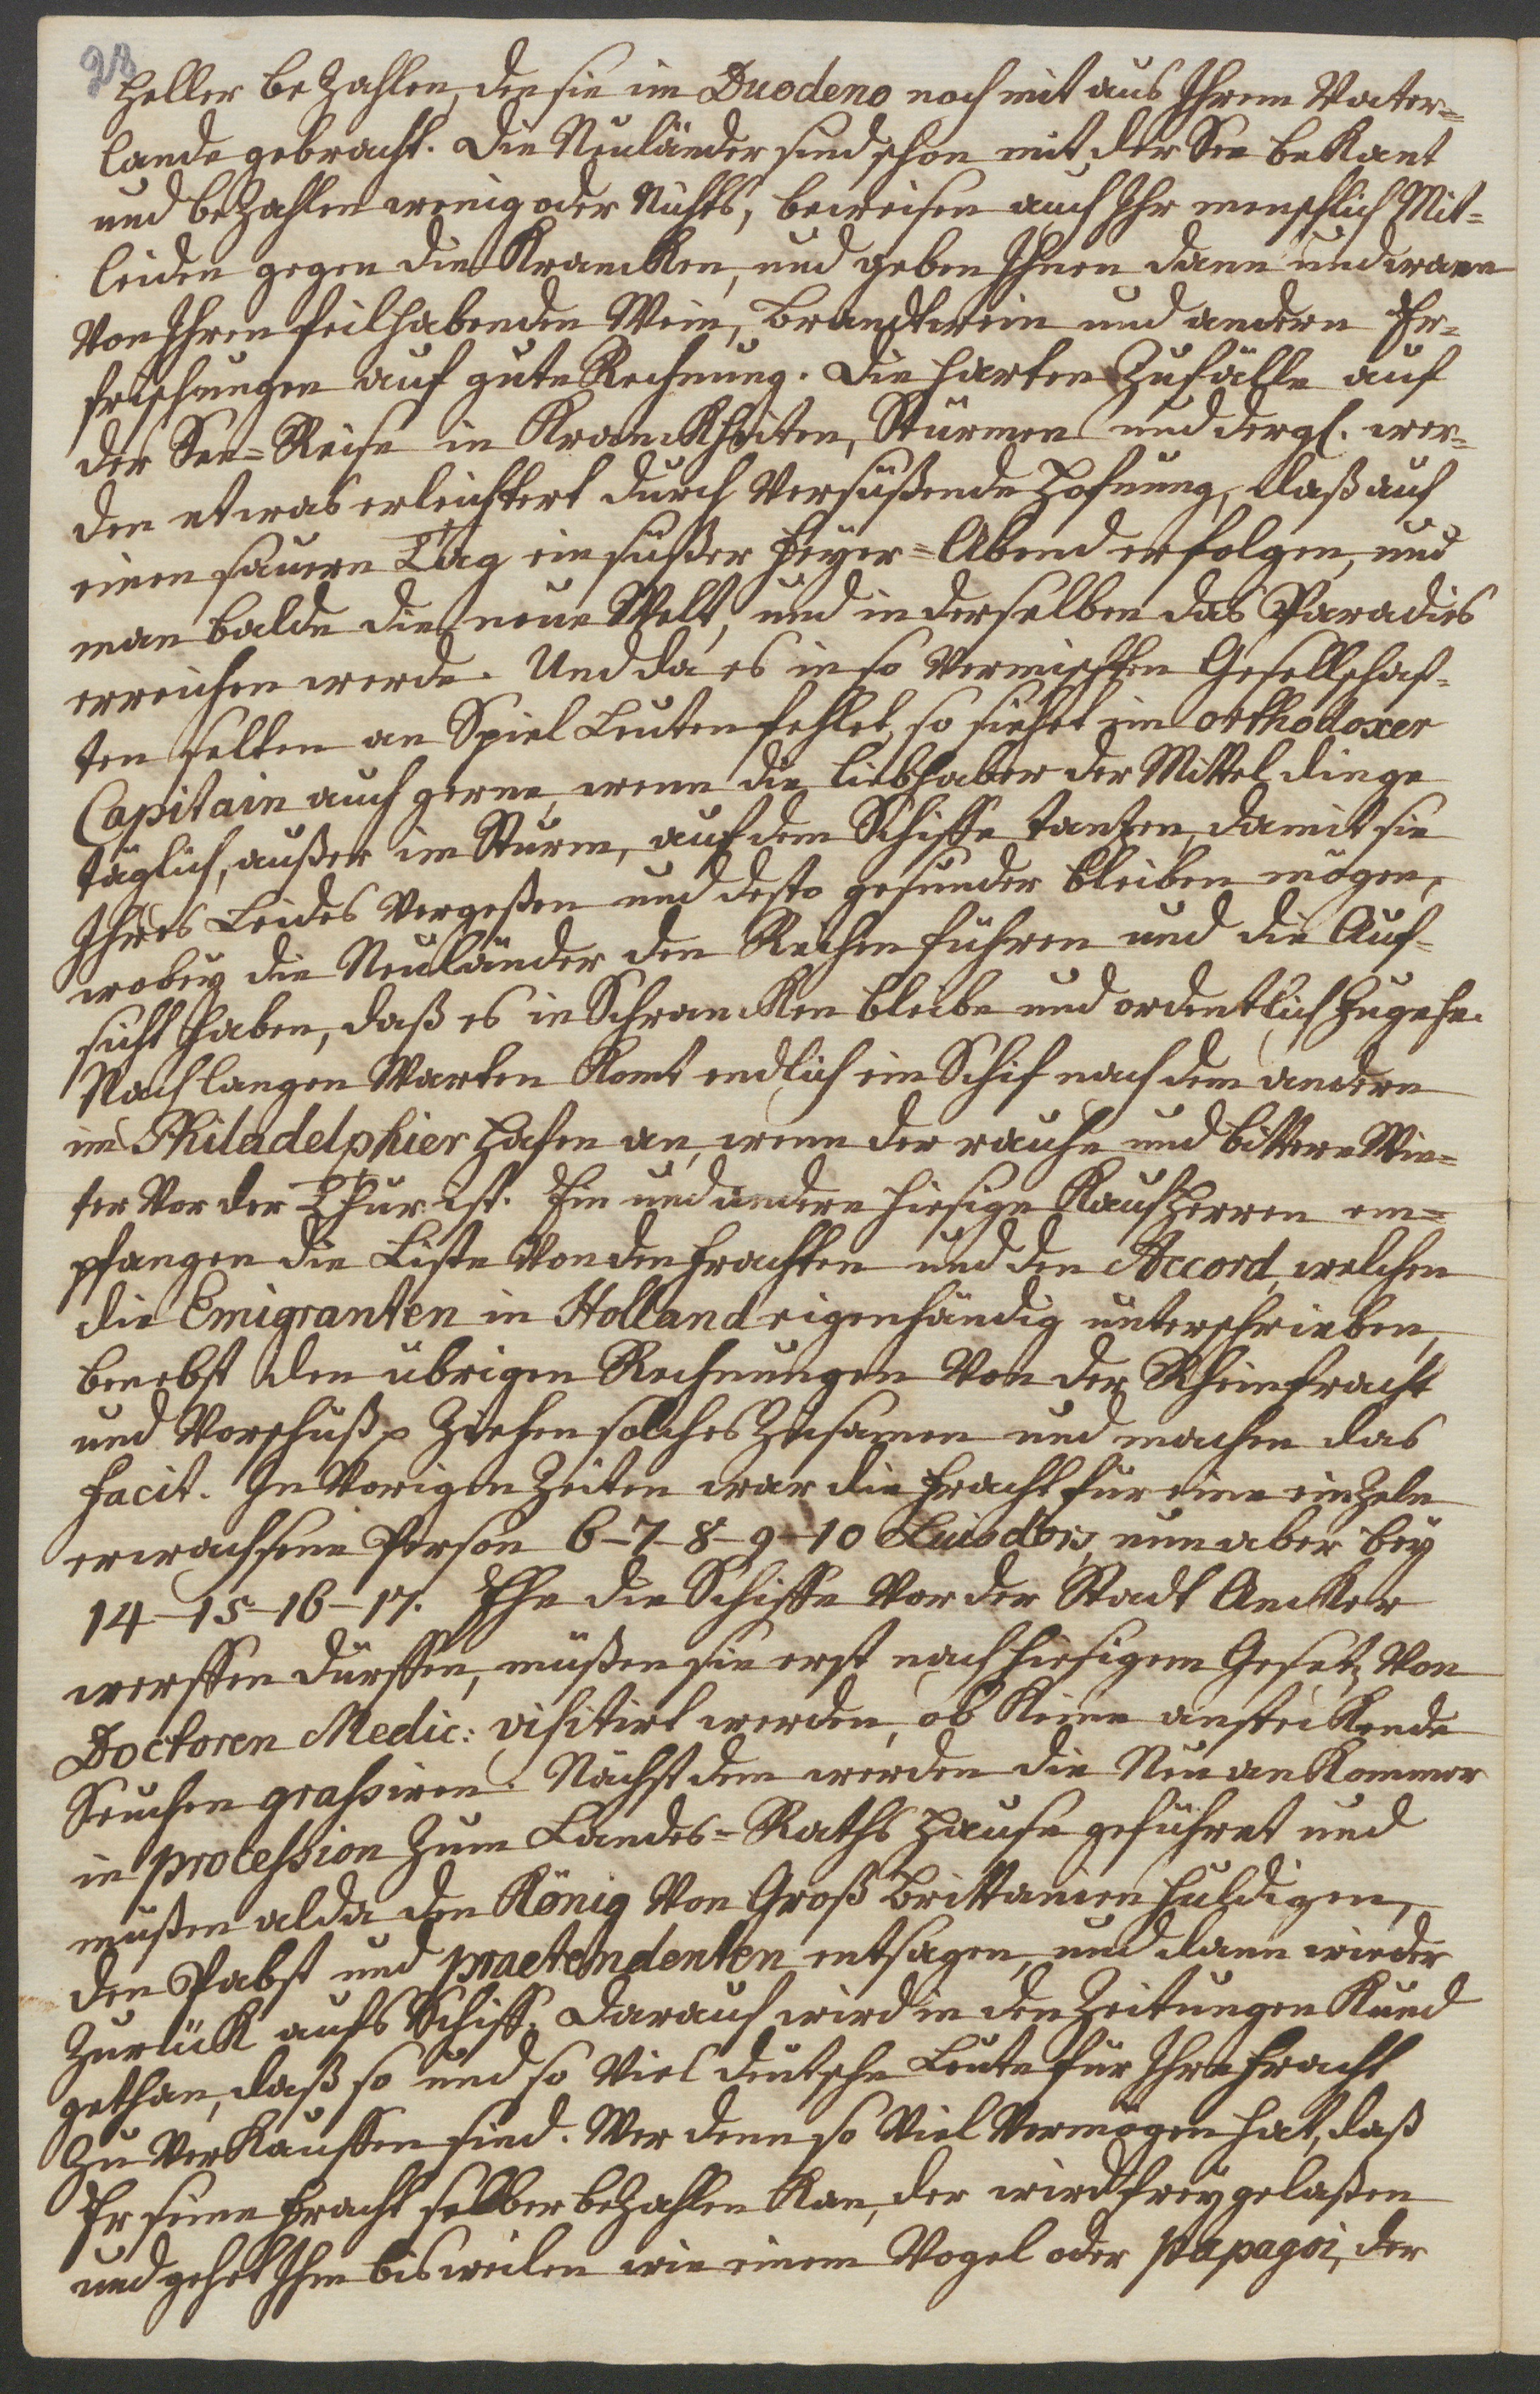 28
Heller bezahlen, den sie im Duodeno noch mit aus Ihrem Vater=
lande gebracht. Die Neuländer sind schon mit der See bekant
und bezahlen wenig oder Nichts, beweisen auch Ihr menschlich Mit=
leiden gegen die Krancken, und geben Ihnen dann und wann
von Ihren feilhabenden Wein, Brandtwein und andern Er=
frischungen auf gute Rechnung. Die harten Zufälle auf
der See=Reise in Kranckheiten, Stürmen und dergl. wer=
den etwas erleichtert durch Versüßende Hofnung, daß auf
einen sauern Tag ein süßer Feyer=Abend erfolgen, und
man balde die neue Welt, und in derselben das Paradies
erreichen werde. Und da es in so Vermischten Gesellschaf=
ten selten an Spiel Leuten fehlet, so siehet ein orthodoxer
Capitain auch gerne, wenn die Liebhaber der Mittel dinge
täglich, außer im Sturm, auf dem Schiffe tantzen, damit sie
Ihres Leides Vergeßen und desto gesunder bleiben mögen,
wobey die Neuländer den Reihen führen und die Auf=
sicht haben, daß es in Schrancken bleibe und ordentlich zugehe.
Nach langen Warten Komt endlich ein Schif nach dem andern
im Philadelphier Hafen an, wenn der rauhe und bittere Win=
ter Vor der Thür ist. Ein und andere hiesige Kauf Herren em=
pfangen die Liste Von den Frachten und den Accord, welchen
die Emigranten in Holland eigenhändig unterschrieben,
benebst den übrigen Rechnungen Von der Rheinfracht
und Vorschuß Ziehen solches Zusamen und machen das
Facit. In Vorigen Zeiten war die Fracht für eine einzeln
erwachsene Person 6-7-8-9-10 Luisdors, nun aber bey
14-15-16-17. Ehe die Schiffe Vor der Stadt Ancker
werffen dürffen, müßen sie erst nach hiesigem Gesetz Von
Doctoren Medic: visitirt werden, ob Keine ansteckende
Seuchen grassiren. Nächst dem werden die Neuankommer
in procession Zum Landes=Raths Hause geführet und
müßen alda den König Von Groß Brittanien huldigen,
den Pabst und praetendenten entsagen, und dann wieder
Zurück aufs Schiff. Darauf wird in den Zeitungen Kund
gethan, daß so und so Viel deutsche Leute für Ihre Fracht
Zu Verkauffen sind. Wer denn so Viel Vermögen hat, daß
Er seine Fracht selber bezahlen Kan, der wird frey gelaßen
und gehet Ihm bisweilen wie einem Vogel oder Papagoi, der